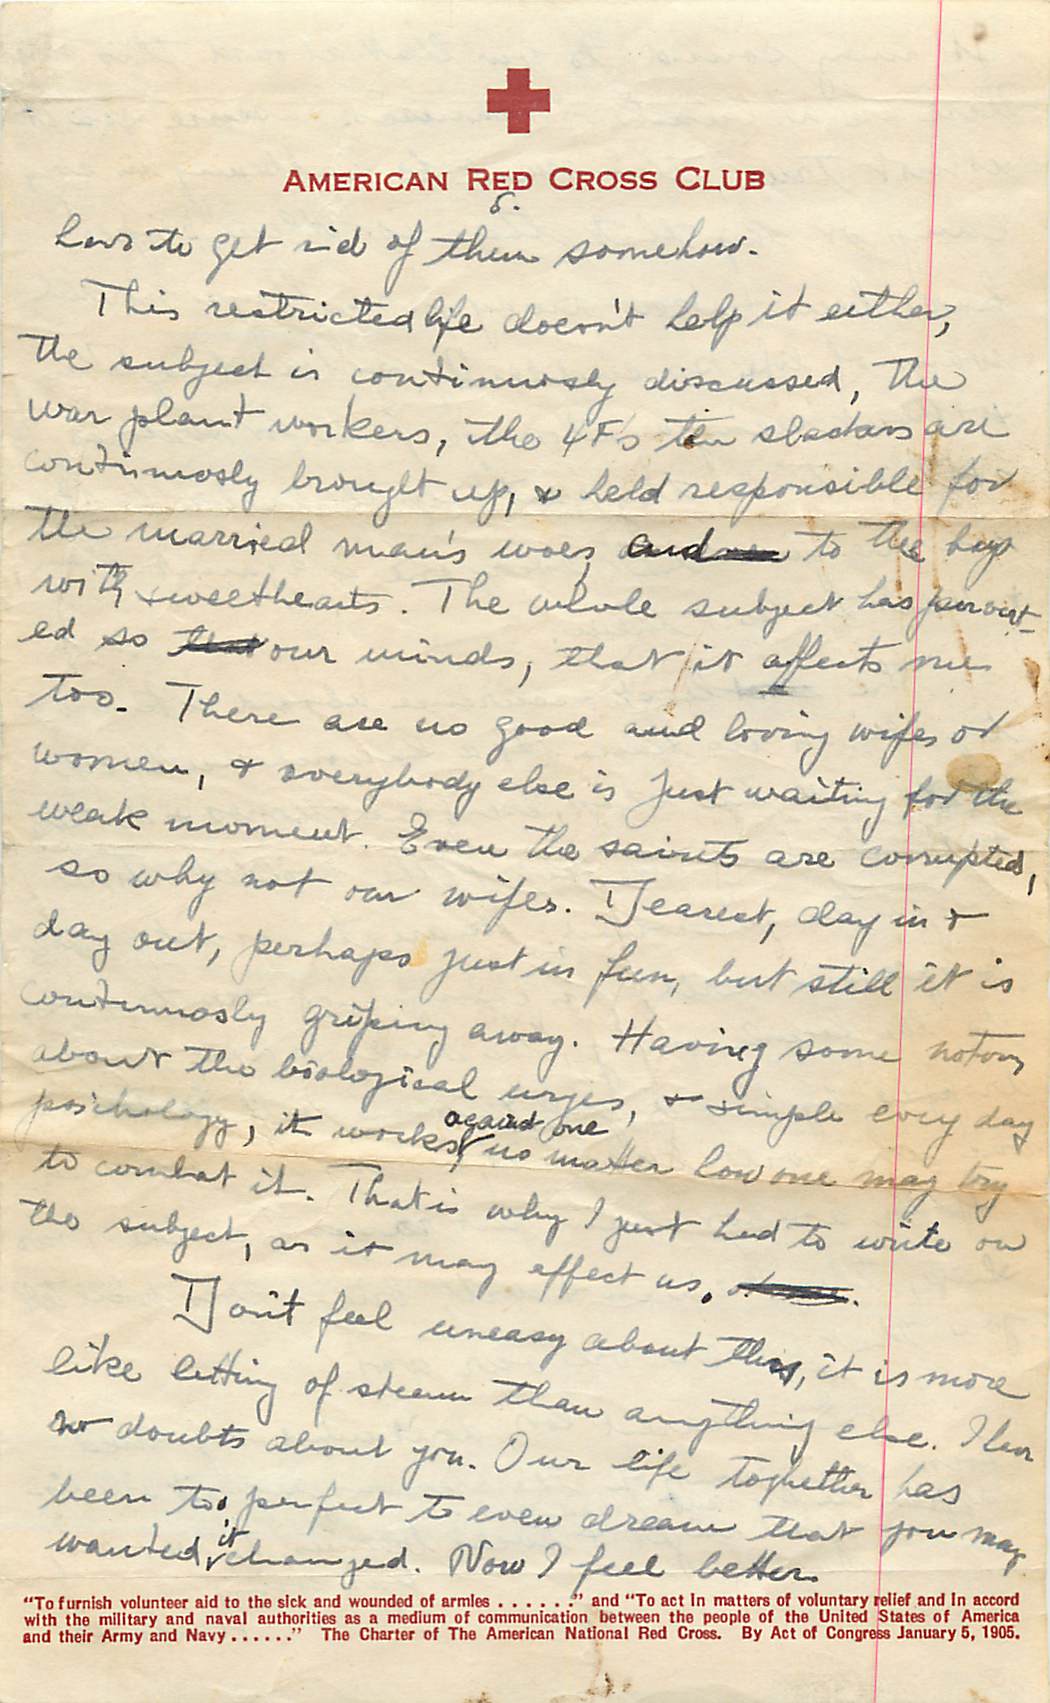 AMERICAN RED CROSS CLUB
5.
have to get rid of them somehow.
This restricted life doesn't help it either,
the subject is continuosly discussed, the
war plant workers, the 4F's the slackers are
continuosly brought up, & held responsible for
the married man's woes, and to the boys
with sweethearts. The whole subject has pervert-
ed so our minds, that it affects me
too. There are no good and loving wifes or
women, & everybody else is just waiting for the
weak moment. Even the saints are corrupted,
so why not our wifes. Dearest, day in &
day out, perhaps just in fun, but still it is
continuosly griping away. Having some notions
about the biological urges, & simple every day
psichology, it works against one no matter how one may try
to combat it. That is why I just had to write on
the subject, as it may effect us.
Don't feel uneasy about this, it is more
like letting of steam than anything else. I have
no doubts about you. Our life toghether has
been too perfect to even dream that you may
wanted it changed. Now I feel better.
"To furnish volunteer aid to the sick and wounded of armies . . . . . ." and "To act in matters of voluntary relief and in accord
with the military and naval authorities as a medium of communication between the people of the United States of America
and their Army and Navy . . . . . ." The Charter of The American National Red Cross. By Act of Congress January 5, 1905.